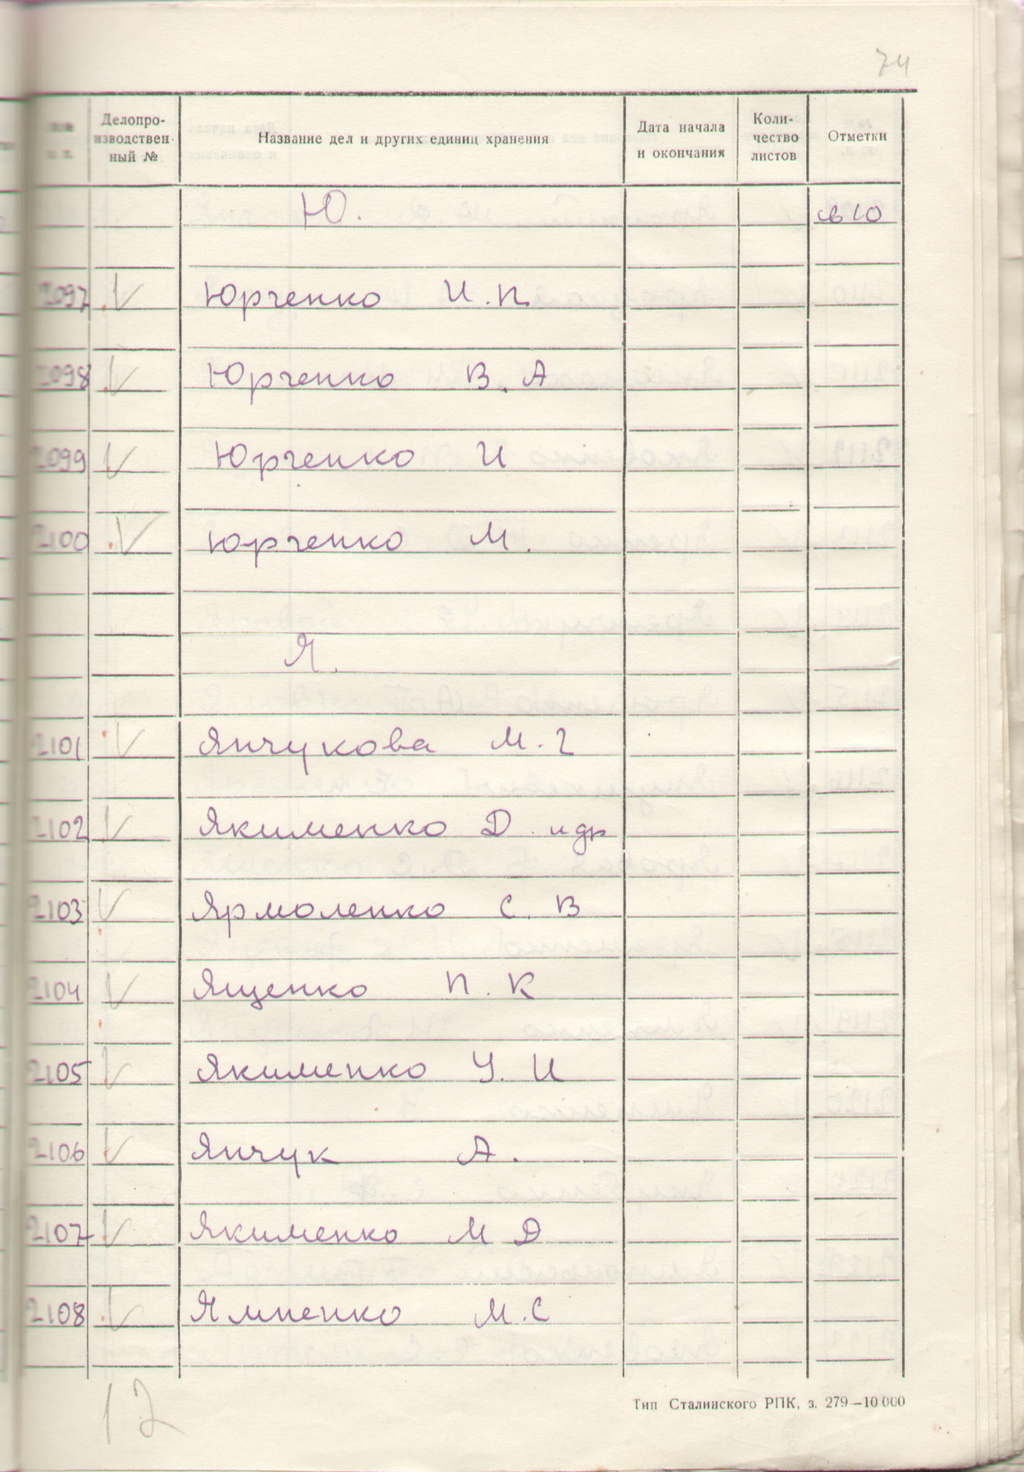 74
Делопро-
изводствен-
ный №
Название дел и других единиц хранения
Дата начала
и окончания
Коли-
чество
листов
Отметки
Ю.
2097 Юрченко И.П.
2098 Юрченко В.А
2099 Юрченко И
2100 Юрченко М.
Я.
2101 Янчукова М.Г
2102 Якименко Д и др
2103 Ярмоленко С. В
2104 Ященко П. К
2105 Якименко У. И
2106 Янчук А.
2107 Якименко М Д
2108 М.С
12
Тип Сталинского РПК, з. 279—10 000